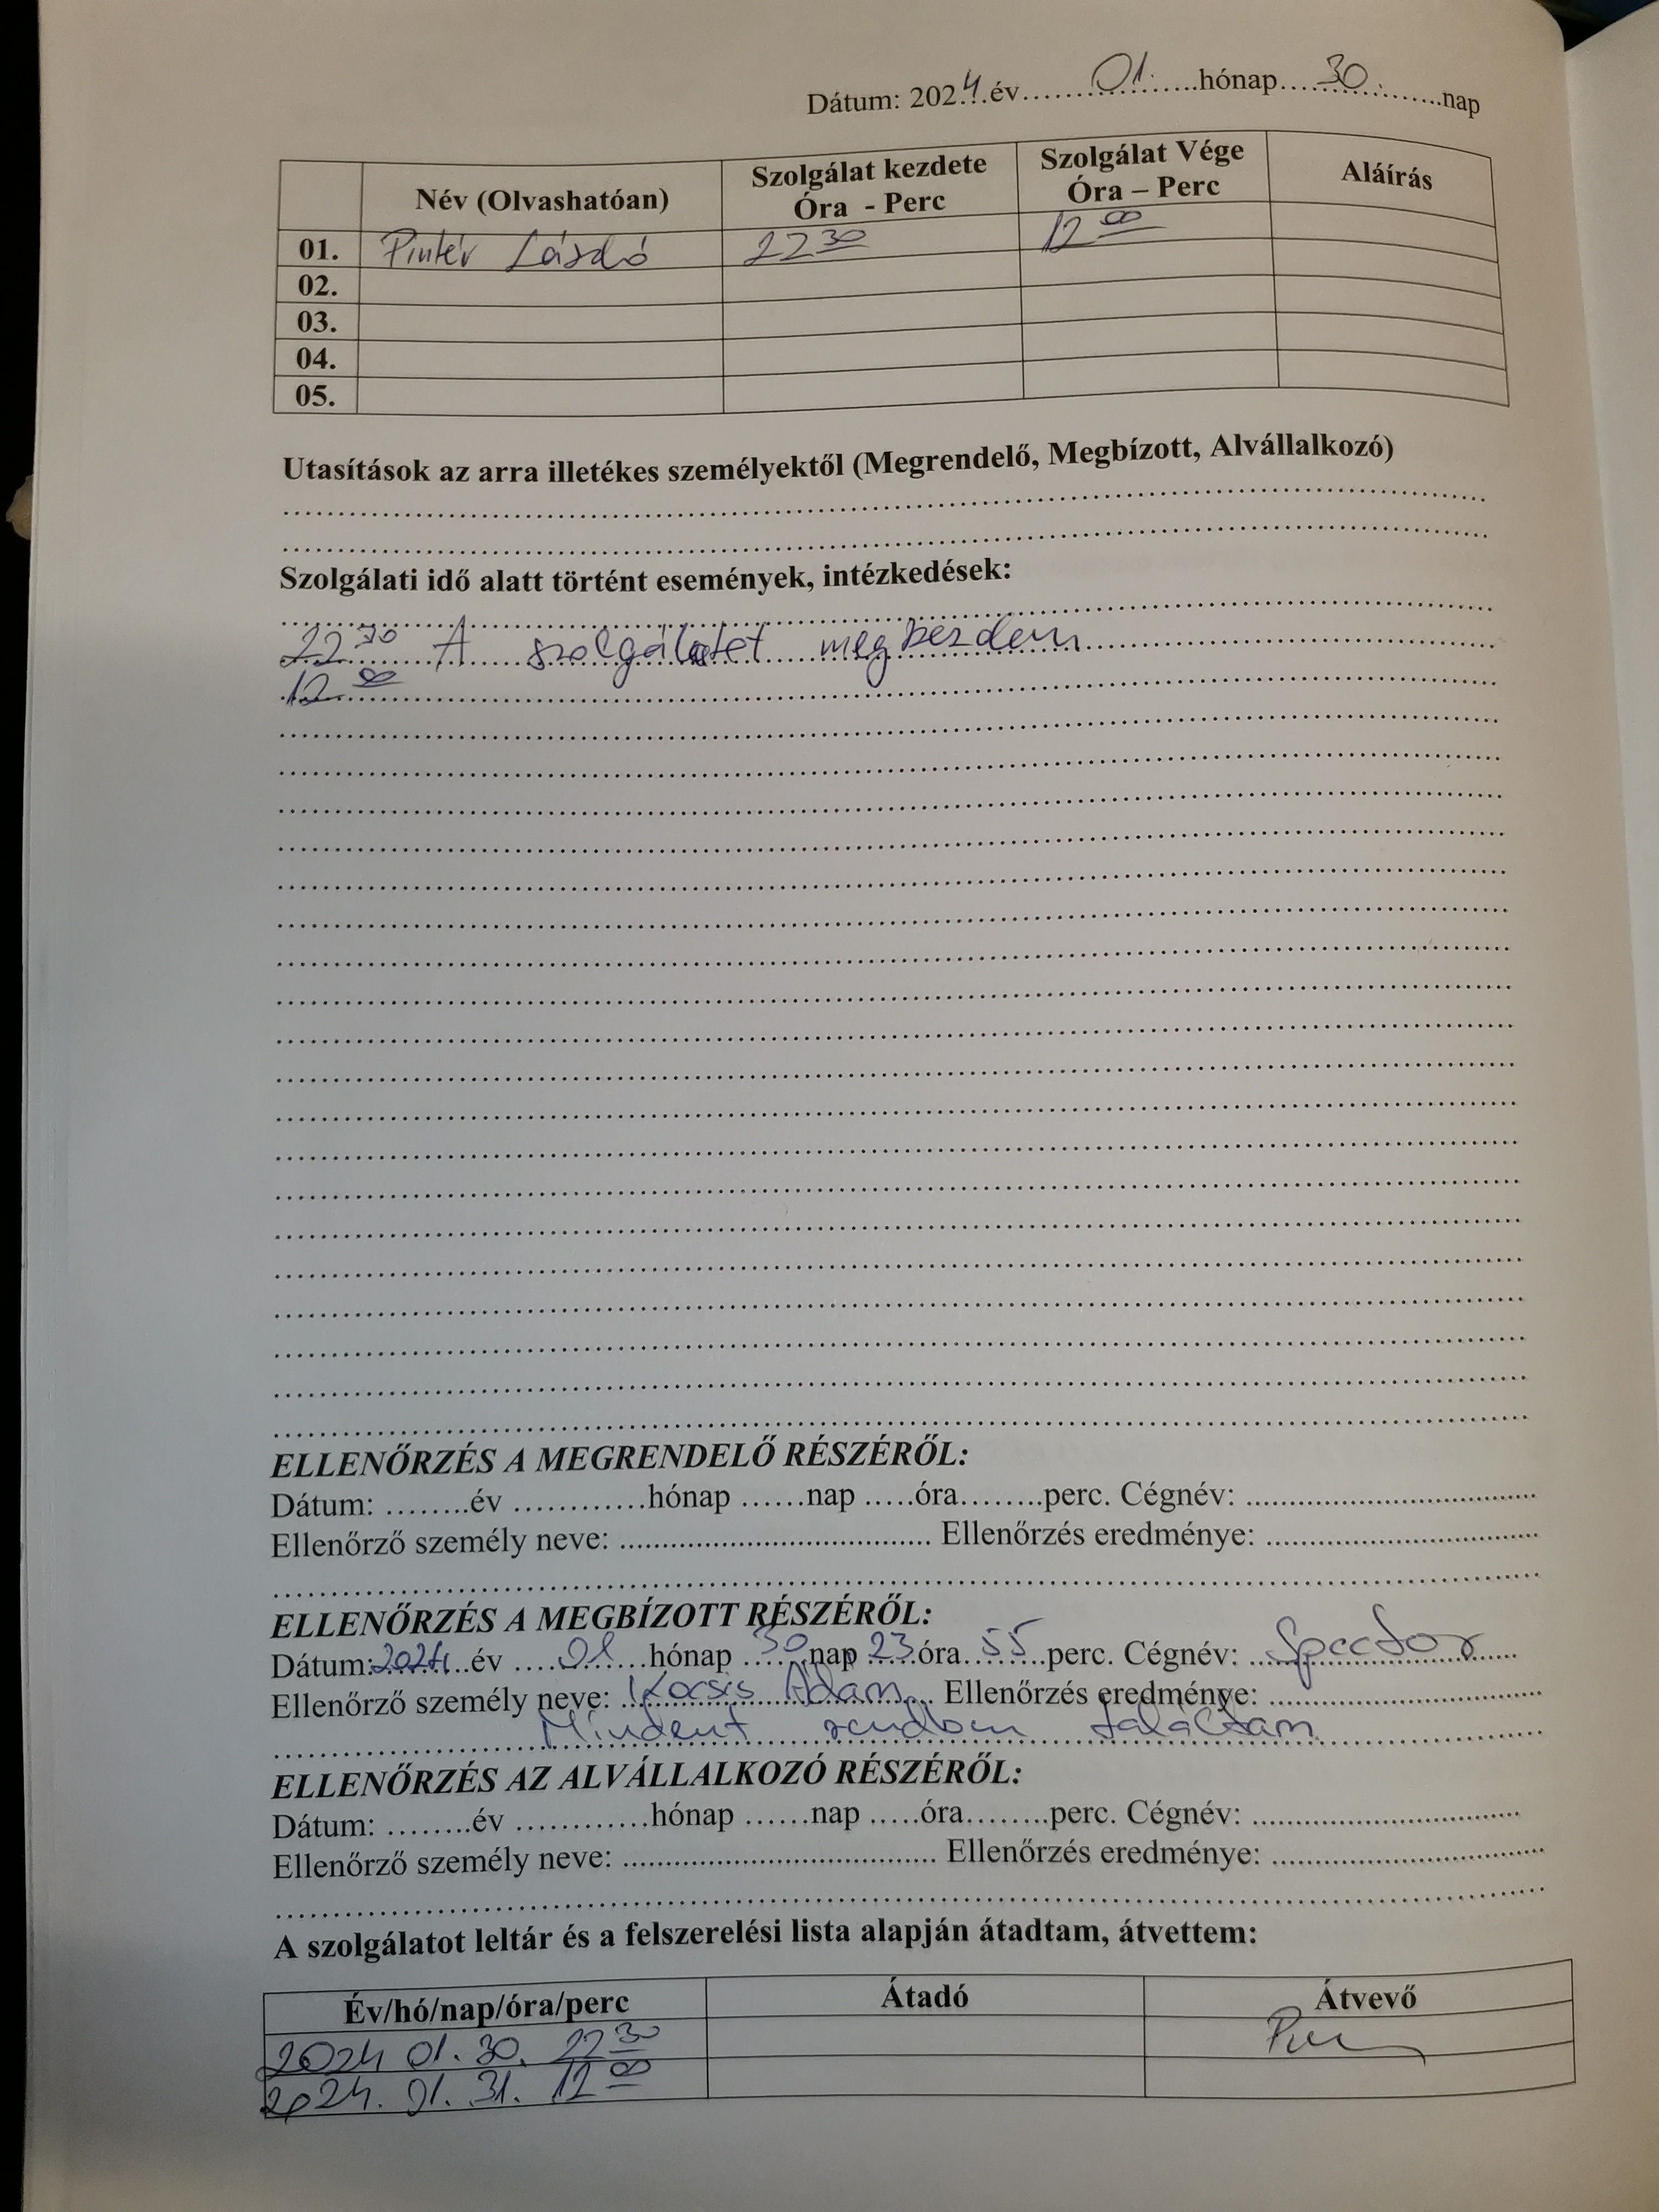 Dátum: 2024.év........01........hónap....30.......nap
Név (Olvashatóan) Szolgálat kezdete Óra - Perc Szolgálat Vége Óra – Perc Aláírás
01. Pintér László 22 30 12 00
02.
03.
04.
05.
Utasítások az arra illetékes személyektől (Megrendelő, Megbízott, Alvállalkozó)
Szolgálati idő alatt történt események, intézkedések:
22 30 A szolgálatot megkezdem
12 00
ELLENŐRZÉS A MEGRENDELŐ RÉSZÉRŐL:
Dátum: ........év ............hónap ......nap .....óra........perc. Cégnév: ..................................
Ellenőrző személy neve: .................................... Ellenőrzés eredménye: ..................................
ELLENŐRZÉS A MEGBÍZOTT RÉSZÉRŐL:
Dátum: 2024 év 01 hónap 30 nap 23 óra 55 perc. Cégnév: Spector
Ellenőrző személy neve: Kocsis Ádám Ellenőrzés eredménye: ..................................
Mindent rendben találtam
ELLENŐRZÉS AZ ALVÁLLALKOZÓ RÉSZÉRŐL:
Dátum: ........év ............hónap ......nap .....óra........perc. Cégnév: ..................................
Ellenőrző személy neve: .................................... Ellenőrzés eredménye: ..................................
A szolgálatot leltár és a felszerelési lista alapján átadtam, átvettem:
Év/hó/nap/óra/perc Átadó Átvevő
2024 01. 30. 22 30
2024. 01. 31. 12 00